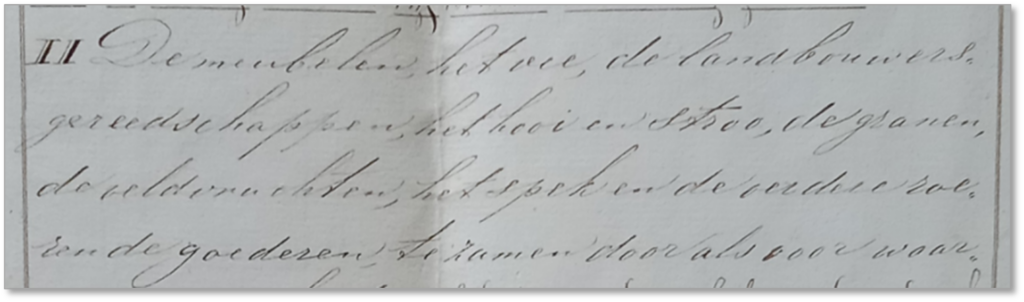 II De meubelen, het vee, de landbouwers-
gereedschappen, het hooi en stroo, de granen,
de veldvruchten, het spek en de verdere roe-
rende goederen te zamen door als voor waar-